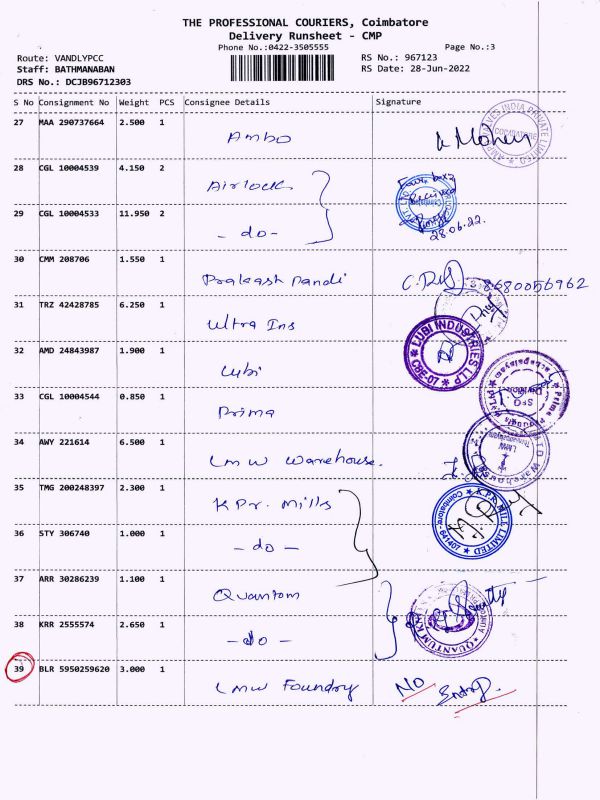 THE PROFESSIONAL COURIERS, Coimbatore
Delivery Runsheet - CMP
Phone No.:0422-3505555 Page No.:3
Route: VANDLYPCC RS No.: 967123
Staff: BATHMANABAN RS Date: 28-Jun-2022
DRS No.: DCJB96712303
S No Consignment No Weight PCS Consignee Details Signature
27 MAA 290737664 2.500 1 Ambo
28 CGL 10004539 4.150 2 Airlock
29 CGL 10004533 11.950 2 - do - 28.06.22.
30 CMM 208706 1.550 1 Prakash Pandi 8680056962
31 TRZ 42428785 6.250 1 Ultra Ins
32 AMD 24843987 1.900 1 Lubi LUBI INDUSTRIES LLP CBE-07
33 CGL 10004544 0.850 1 Prima
34 AWY 221614 6.500 1 LMW Warehouse.
35 TMG 200248397 2.300 1 KPR. Mills
K.P.R. MILL LIMITED Coimbatore - 641407
36 STY 306740 1.000 1 - do -
37 ARR 30286239 1.100 1 Quantom
38 KRR 2555574 2.650 1 - do -
39 BLR 5950259620 3.000 1 LMW Foundry NO Entry.